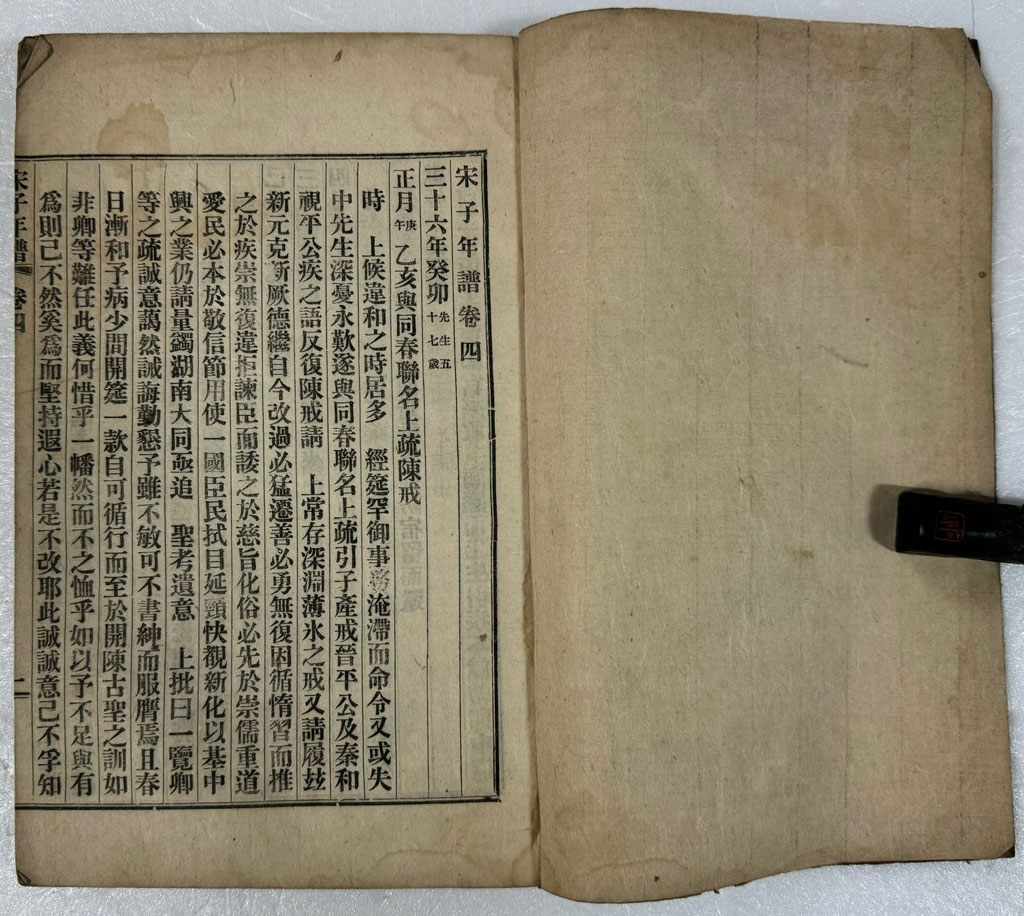 宋子年譜卷四
三十六年癸卯先生五十七歲
正月庚午乙亥與同春聯名上疏陳戒
時 上候違和之時居多 經筵罕御事務淹滯而命令又或失
中先生深憂永歎遂與同春聯名上疏引子產戒晉平公及秦和
視平公疾之語反復陳戒請 上常存深淵薄氷之戒又請履玆
新元克新厥德繼自今改過必猛遷善必勇無復因循惰習而推
之於疾祟無復違拒諫臣而諉之於慈旨化俗必先於崇儒重道
愛民必本於敬信節用使一國臣民拭目延頸快覩新化以基中
興之業仍請量蠲湖南大同亟追 聖考遺意 上批曰一覽卿
等之疏誠意藹然誠誨勤懇予雖不敏可不書紳而服膺焉且春
日漸和予病少間開筵一款自可循行而至於開陳古聖之訓如
非卿等難任此義何惜乎一幡然而不之恤乎如以予不足與有
爲則已不然奚爲而堅持遐心若是不改耶此誠誠意已不孚知
宋子年譜 卷四